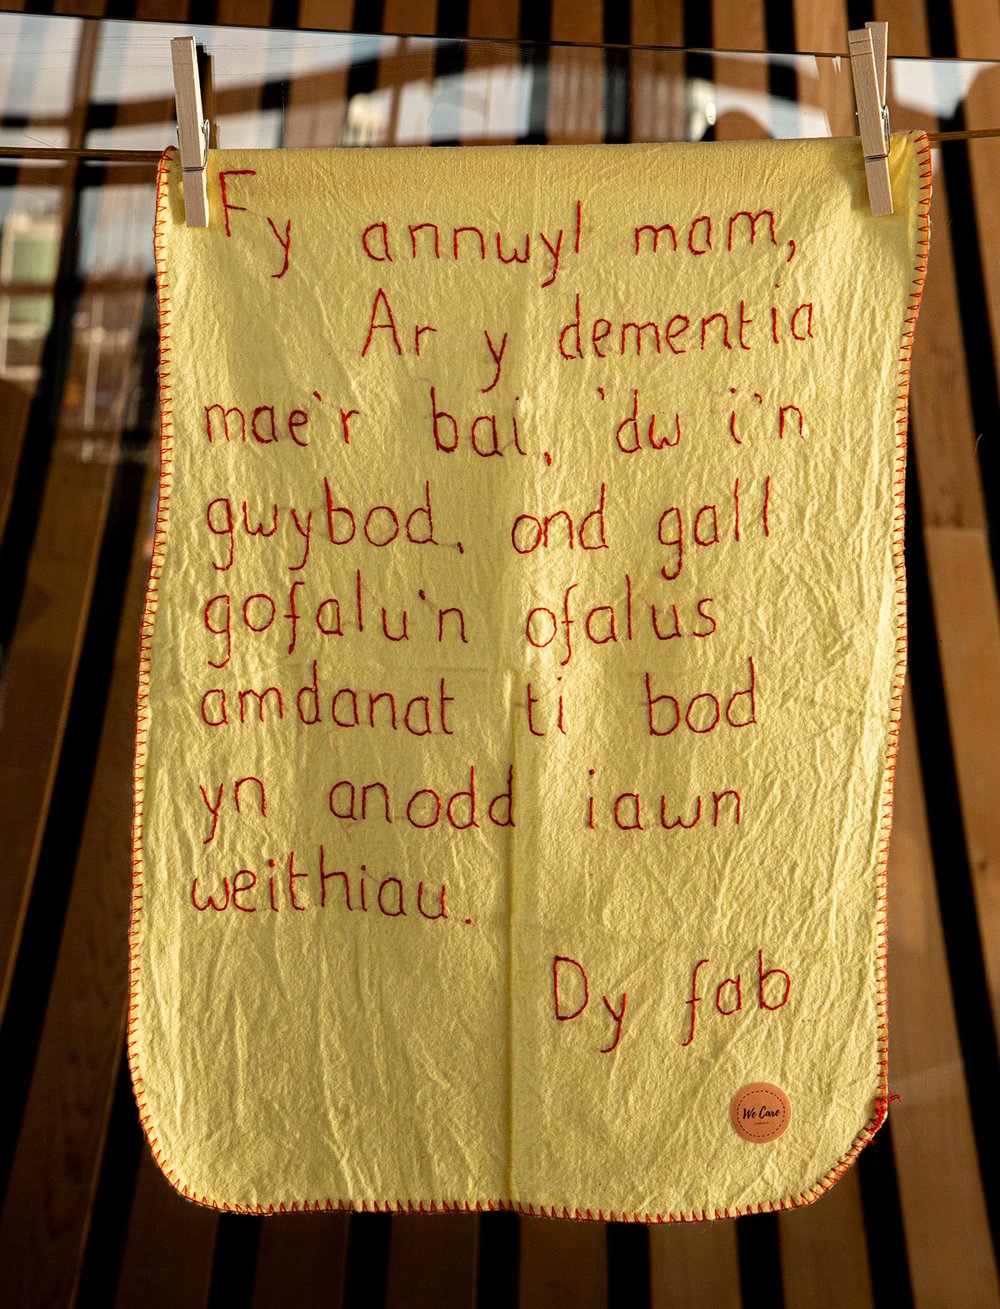 Fy annwyl mam,
Ar y dementia
mae'r bai, 'dw i'n
gwybod, ond gall
gofalu'n ofalus
amdanat ti bod
yn anodd iawn
weithiau.
Dy fab
We Care